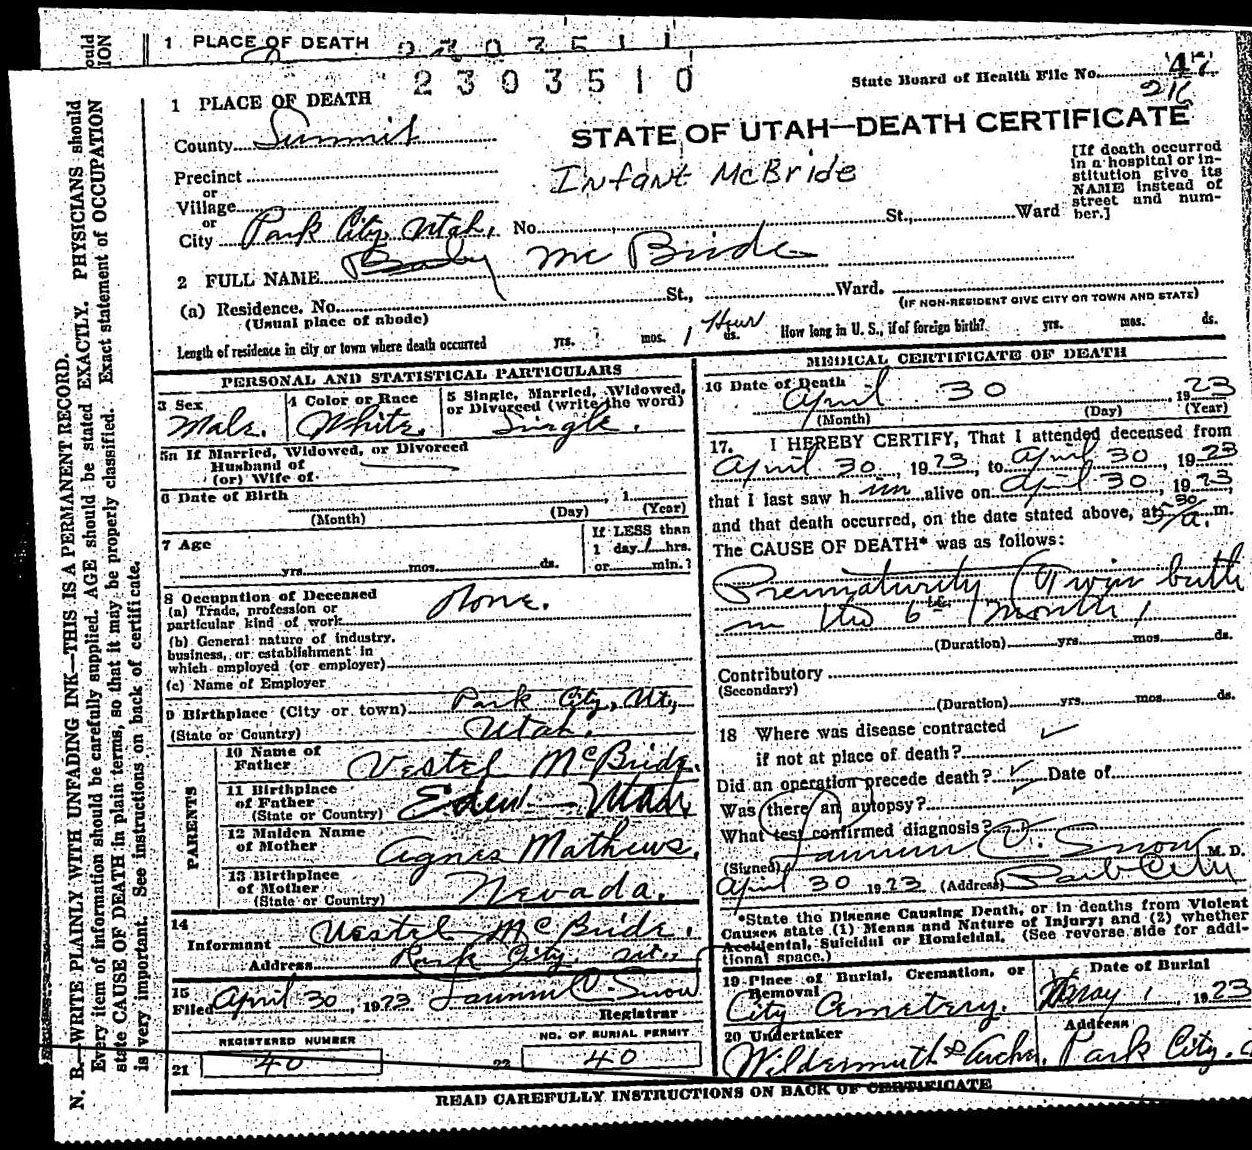 1 PLACE OF DEATH
2303511
2303510
State Board of Health File No. 47
216
1 PLACE OF DEATH
County Summit
STATE OF UTAH—DEATH CERTIFICATE
Precinct
or
Village
or
City Park City, Utah. No. St., Ward
Infant McBride
[If death occurred
in a hospital or in-
stitution give its
NAME instead of
street and num-
ber.]
2 FULL NAME Baby McBride
(a) Residence, No. St., Ward.
(Usual place of abode)
(IF NON-RESIDENT GIVE CITY OR TOWN AND STATE)
Length of residence in city or town where death occurred yrs. mos. 1 Hour ds. How long in U. S., if of foreign birth? yrs. mos. ds.
PERSONAL AND STATISTICAL PARTICULARS
3 Sex
Male.
4 Color or Race
White.
5 Single, Married, Widowed,
or Divorced (write the word)
Single.
5a If Married, Widowed, or Divorced
Husband of
(or) Wife of
6 Date of Birth , 1
(Month) (Day) (Year)
7 Age
yrs. mos. ds.
If LESS than
1 day 1 hrs.
or min.?
8 Occupation of Deceased
(a) Trade, profession or
particular kind of work None.
(b) General nature of industry,
business, or establishment in
which employed (or employer)
(c) Name of Employer
9 Birthplace (City or town) Park City, Ut.,
(State or Country) Utah.
PARENTS
10 Name of
Father Vestel McBride.
11 Birthplace
of Father
(State or Country) Eden — Utah
12 Maiden Name
of Mother Agnes Mathews.
13 Birthplace
of Mother
(State or Country) Nevada.
14
Informant Vestel McBride.
Address Park City, Ut.,
15
Filed April 30, 1923 C. Snow
Registrar
REGISTERED NUMBER
21 40
NO. OF BURIAL PERMIT
22 40
MEDICAL CERTIFICATE OF DEATH
16 Date of Death
April 30, 1923
(Month) (Day) (Year)
17. I HEREBY CERTIFY, That I attended deceased from
April 30, 1923, to April 30, 1923
that I last saw him alive on April 30, 1923,
and that death occurred, on the date stated above, at 5 30 a. m.
The CAUSE OF DEATH* was as follows:
Prematurity (Twin birth
in the 6th month)
(Duration) yrs. mos. ds.
Contributory
(Secondary)
(Duration) yrs. mos. ds.
18 Where was disease contracted
if not at place of death?
Did an operation precede death? Date of
Was there an autopsy?
What test confirmed diagnosis?
(Signed) Snow M. D.
April 30 1923 (Address) Park City
*State the Disease Causing Death, or in deaths from Violent
Causes state (1) Means and Nature of Injury; and (2) whether
Accidental, Suicidal or Homicidal. (See reverse side for addi-
tional space.)
19 Place of Burial, Cremation, or
Removal
City Cemetery.
Date of Burial
May 1, 1923
20 Undertaker
Wildermuth & Archer.
Address
Park City.
READ CAREFULLY INSTRUCTIONS ON BACK OF CERTIFICATE
N. B.—WRITE PLAINLY WITH UNFADING INK—THIS IS A PERMANENT RECORD.
Every item of information should be carefully supplied. AGE should be stated EXACTLY. PHYSICIANS should
state CAUSE OF DEATH in plain terms, so that it may be properly classified. Exact statement of OCCUPATION
is very important. See instructions on back of certificate.